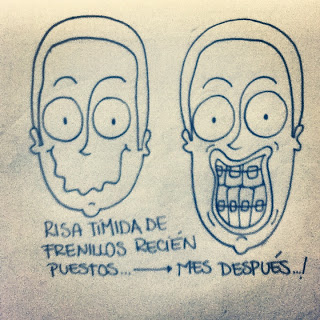 RISA TÍMIDA DE
FRENILLOS RECIÉN
PUESTOS... → MES DESPUÉS...!